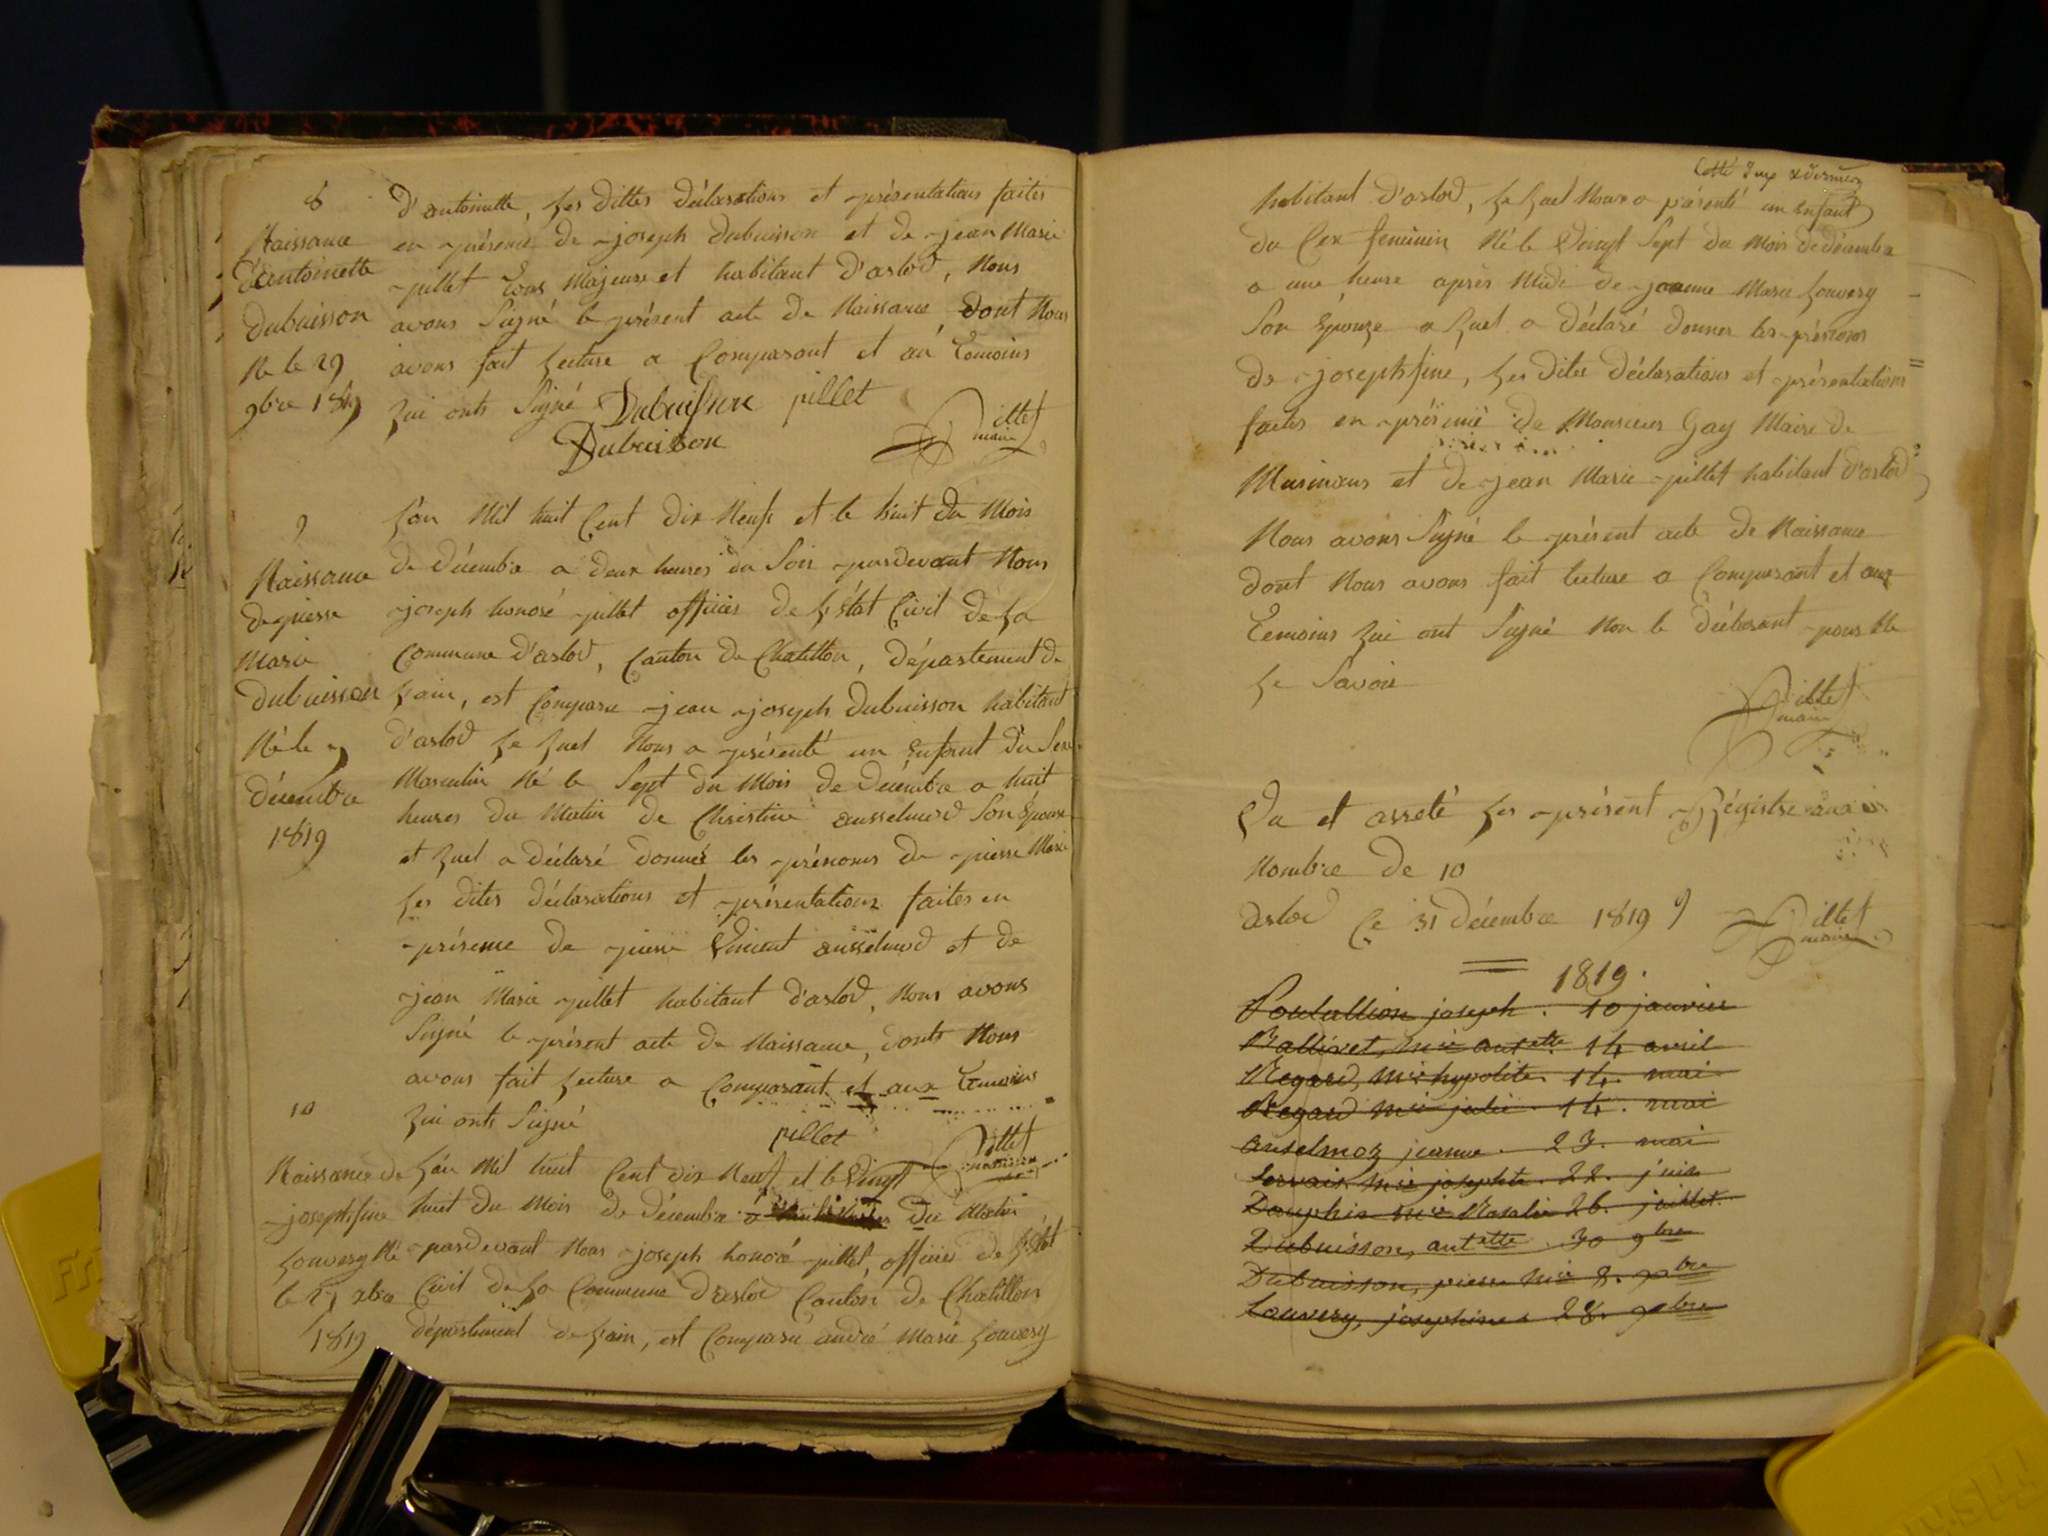 8
Naissance
d'antoinette
dubuisson
Né le 29
9bre 1819
d'antoinette, Les dittes déclarations et présentations faites
en présence de joseph dubuisson et de jean Marie
pillet Tous Majeurs et habitant d'arlod, Nous
avons Signé le présent acte de Naissance, dont Nous
avons fait Lecture a Comparant et au Temoins
qui onts Signé Dubuisson pillet
Dubuisson
Pillet
maire
9
Naissance
de pierre
Marie
dubuisson
Né le 7
décembre
1819
L'an Mil huit Cent dix Neufs et le huit du Mois
de décembre a deux heures du Soir pardevant Nous
joseph honoré pillet officier de L'état Civil de La
Commune d'arlod, Canton de Chatillon, département de
L'ain, est Comparu jean joseph dubuisson habitant
d'arlod Le quel Nous a présenté un enfant du Sexe
Masculin Né le Sept du Mois de Décembre a huit
heures du Matin de Christine ansselmod Son Epouse
et quel a déclaré donner les prénoms de pierre Marie
Les dites déclarations et présentations faites en
présence de pierre Vincent ansselmod et de
jean Marie pillet habitant d'arlod, Nous avons
Signé le présent acte de Naissance, donts Nous
avons fait Lecture a Comparant et aux Temoins
qui onts Signé
pillet
Pillet
maire
10
Naissance de
josephfine
Louvery Né
le 27 xbre
1819
L'an Mil huit Cent dix Neuf et le Vingt
huit du Mois de décembre à du Matin
pardevant Nous joseph honoré pillet, officier de L'état
Civil de La Commune D'arlod Canton de Chatillon
département de L'ain, est Comparu andré Marie Louvery
Cotté
habitant d'arlod, Le quel Nous a présenté un enfant
du Cex feminin Né le Vingt Sept du Mois de décembre
a une heure après Midi de jeanne Marie Louvery
Son Epouze a quel a déclaré donner les prénoms
de josephfine, Les dites déclarations et présentations
faites en présence de Monsieur Gay Maire de
Musinens et de jean Marie pillet habitant d'arlod
Nous avons Signé le présent acte de Naissance
dont Nous avons fait lecture a Comparant et aux
Temoins qui ont Signé Non le déclarant pour Ne
Le Savoir
Pillet
maire
Vu et arreté Les présent Régistre au
Nombre de 10
arlod Ce 31 décembre 1819
Pillet
maire
1819.
Poulallion joseph. 10 janvier
Ballivet, mie antette. 14 avril
Regard, mie hypolite. 14. mai
Regard mie julie. 14. mai
anselmoz jeanne. 23. mai
Servais mie josephte. 22. juin
Dauphin mie Rosalie 26. juillet.
Dubuisson, antette. 30 9bre
Dubuisson, pierre mie 8. xbre
Louvery, josephine. 28. xbre